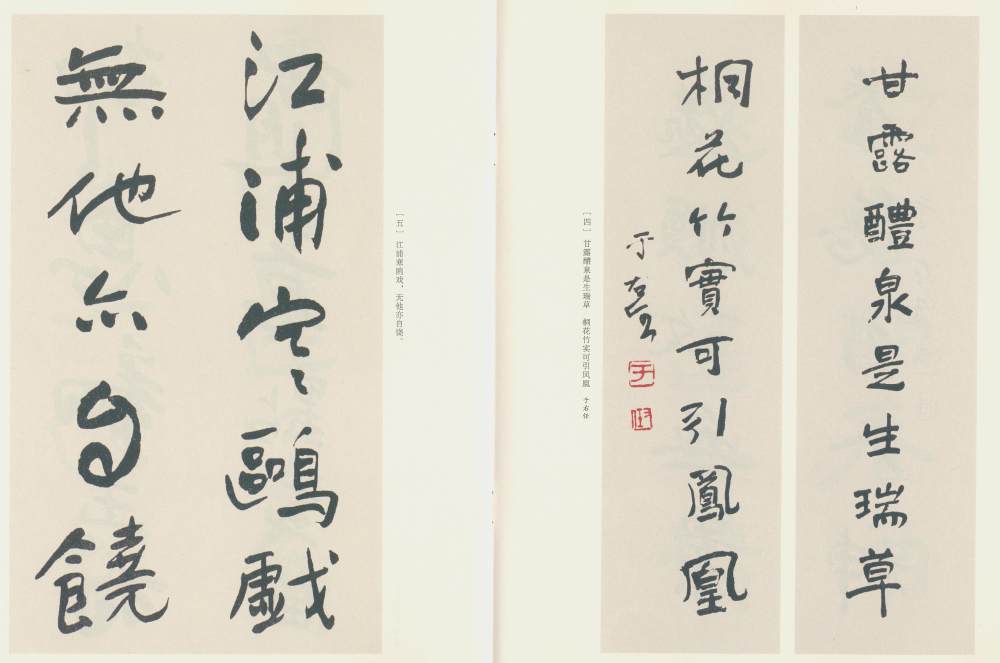 甘露醴泉是生瑞草
桐花竹實可引鳳凰
于右任
［四］ 甘露醴泉是生瑞草 桐花竹实可引凤凰 于右任
［五］ 江浦寒鸥戏，无他亦自饶。
江浦寒鷗戲
無他亦自饒